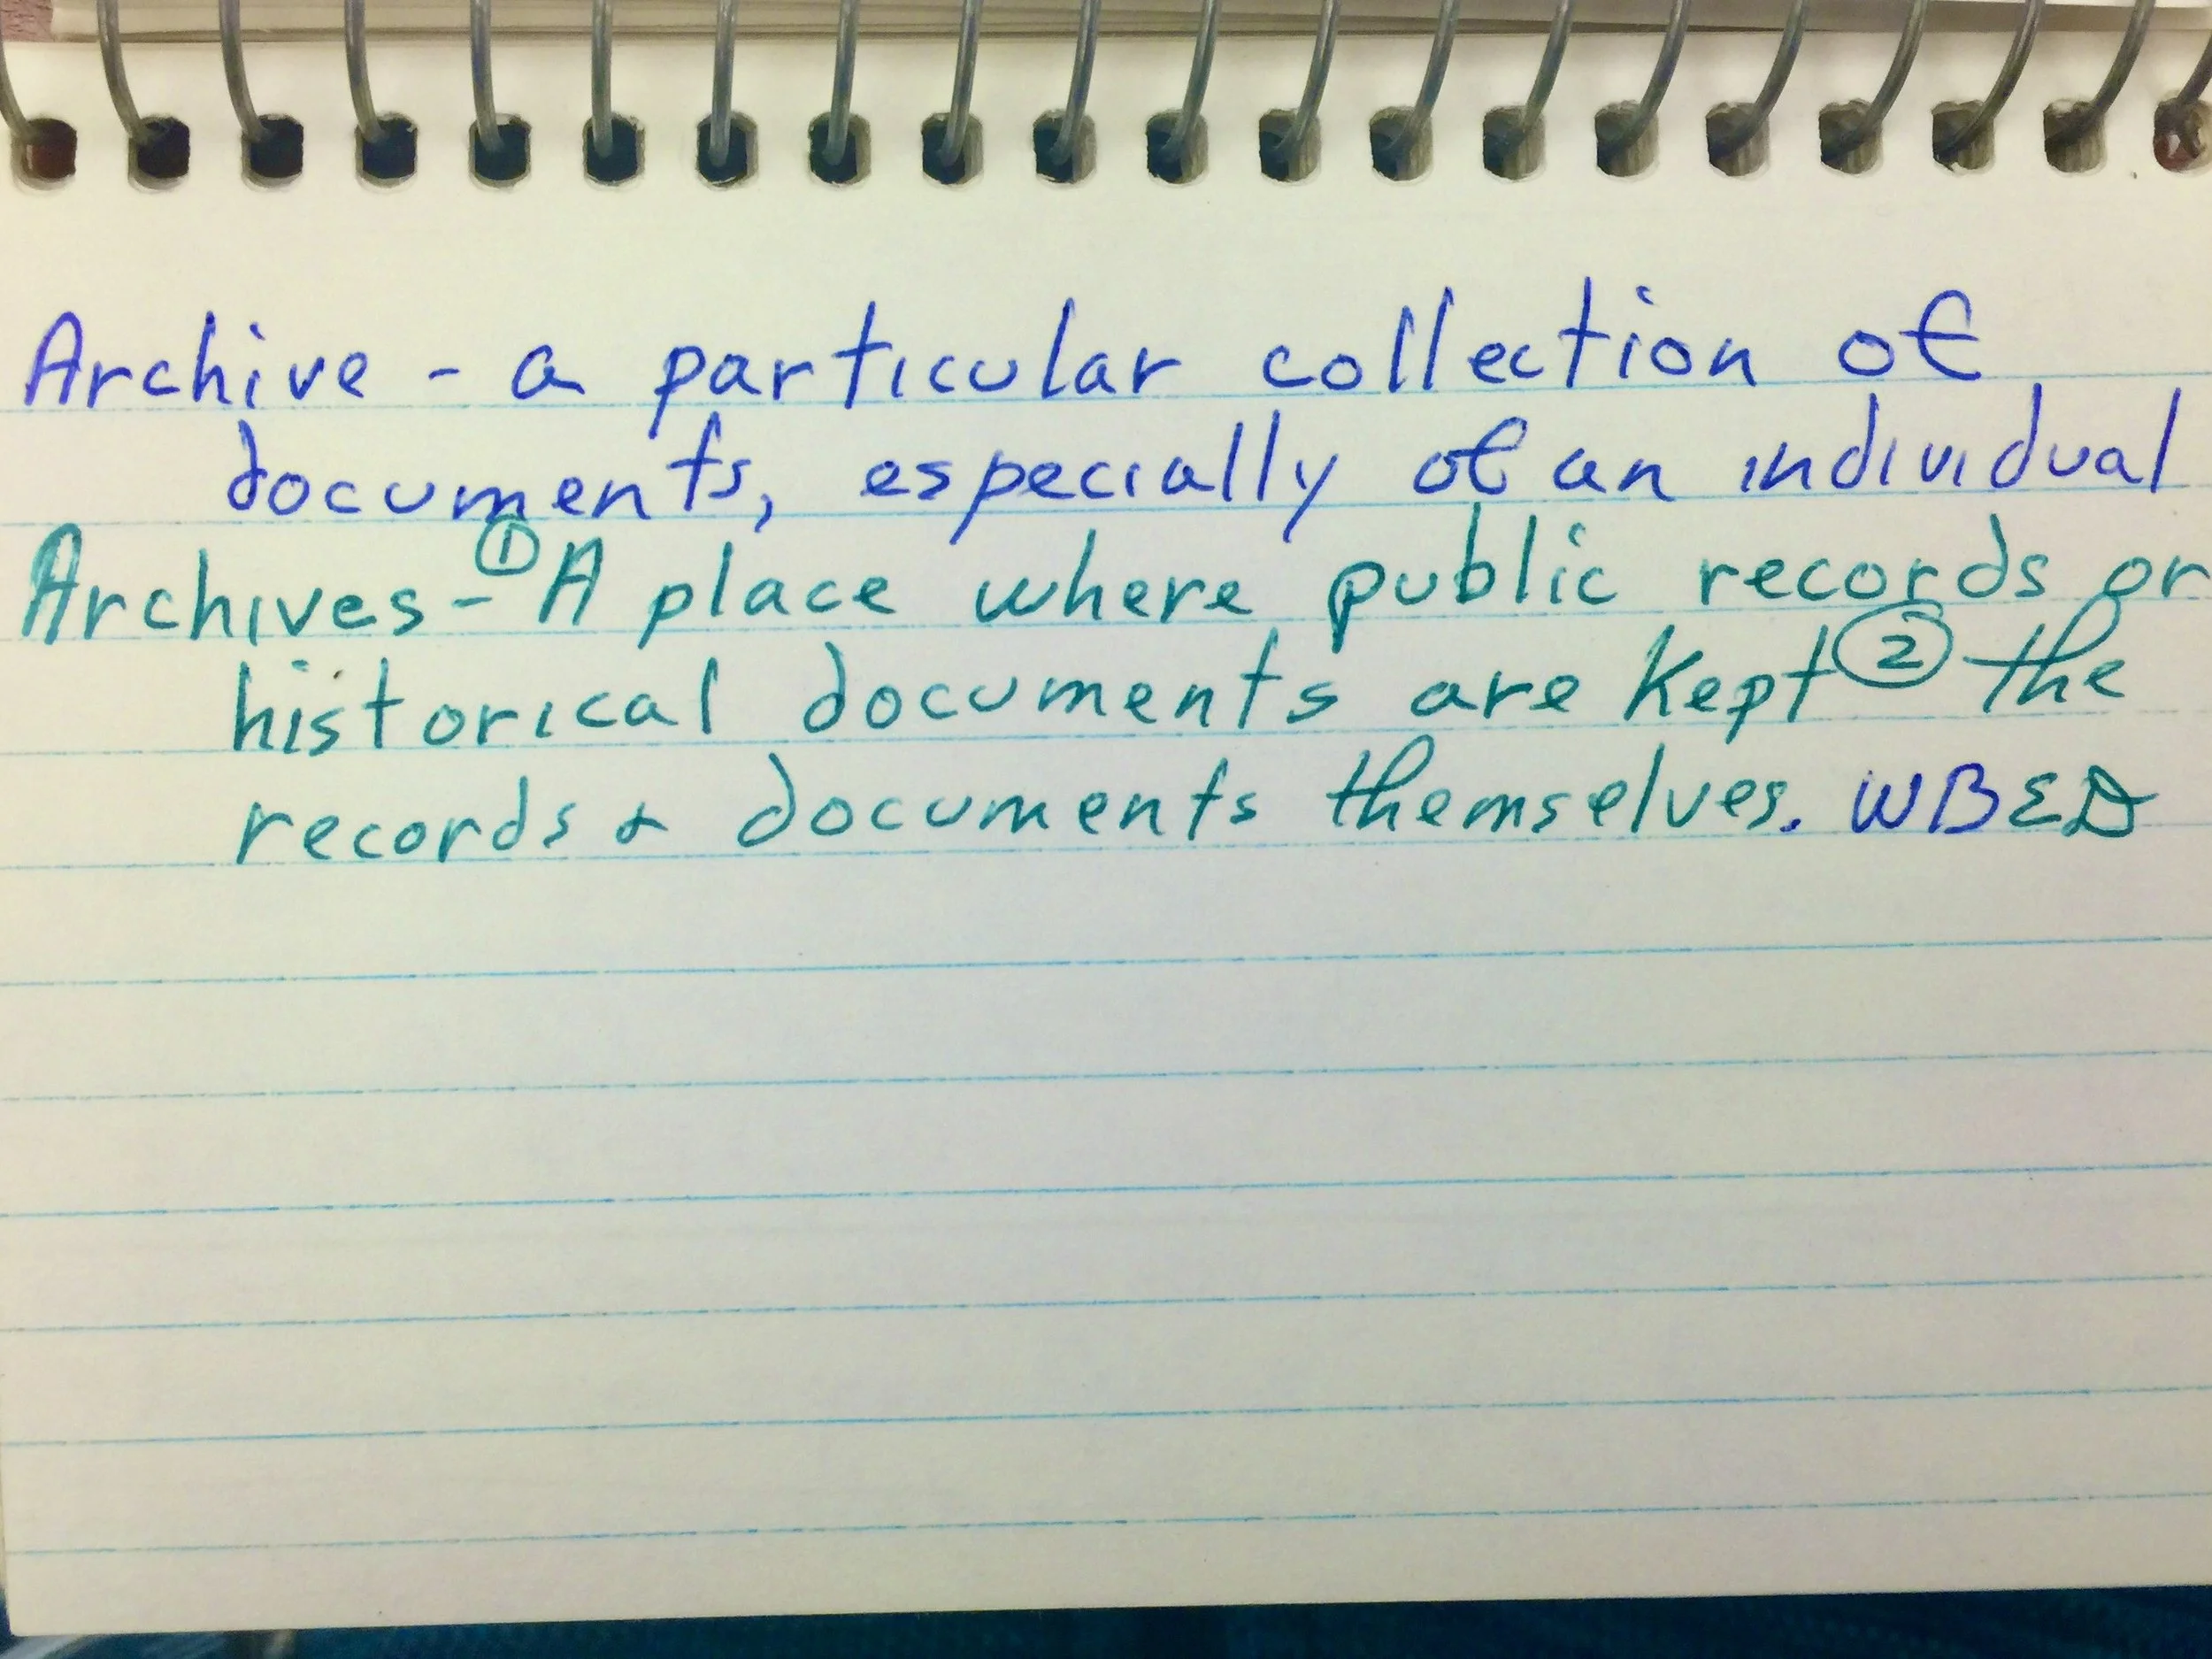 Archive - a particular collection of
documents, especially of an individual
Archives - ① A place where public records or
historical documents are kept ② the
records & documents themselves. WBED